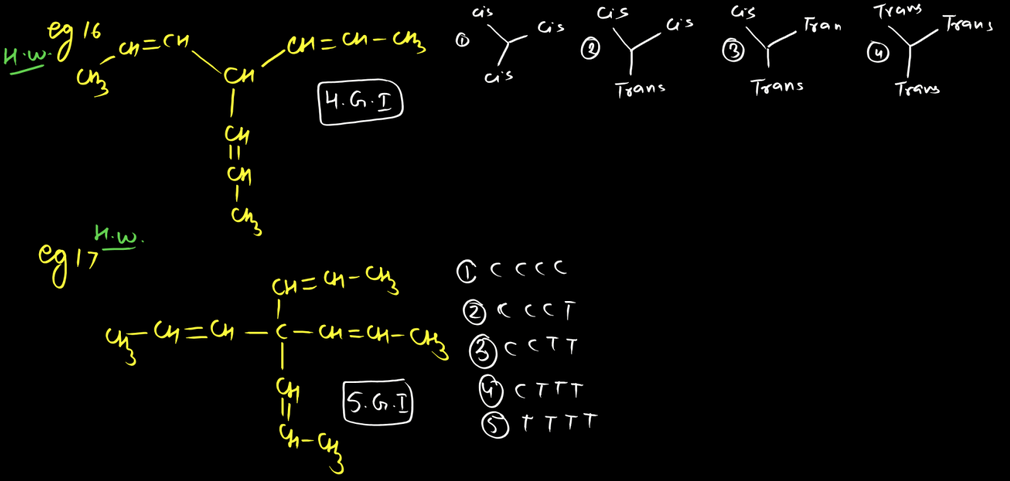 eg 16
H.W.
CH3 CH=CH CH CH=CH-CH3
CH
||
CH
CH3
4.G.I
① Cis Cis Cis
② Cis Cis Trans
③ Cis Tran Trans
④ Trans Trans Trans
eg 17 H.W.
CH=CH-CH3
CH3-CH=CH-C-CH=CH-CH3
CH
||
CH-CH3
5.G.I
① C C C C
② C C C T
③ C C T T
④ C T T T
⑤ T T T T